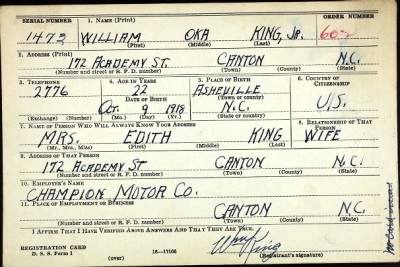 SERIAL NUMBER 1. NAME (Print) ORDER NUMBER
1473 WILLIAM OKA KING, JR. 602
(First) (Middle) (Last)
2. ADDRESS (Print)
172 ACADEMY ST. CANTON N.C.
(Number and street or R. F. D. number) (Town) (County) (State)
3. TELEPHONE 4. AGE IN YEARS 5. PLACE OF BIRTH 6. COUNTRY OF CITIZENSHIP
2776 22 ASHEVILLE
DATE OF BIRTH (Town) (County)
OCT. 9 1918 N.C. U.S.
(Exchange) (Number) (Mo.) (Day) (Yr.) (State or country)
7. NAME OF PERSON WHO WILL ALWAYS KNOW YOUR ADDRESS 8. RELATIONSHIP OF THAT PERSON
MRS. EDITH KING WIFE
(Mr., Mrs., Miss) (First) (Middle) (Last)
9. ADDRESS OF THAT PERSON
172 ACADEMY ST CANTON N.C.
(Number and street or R. F. D. number) (Town) (County) (State)
10. EMPLOYER'S NAME
CHAMPION MOTOR CO.
11. PLACE OF EMPLOYMENT OR BUSINESS
CANTON N.C.
(Number and street or R. F. D. number) (Town) (County) (State)
I AFFIRM THAT I HAVE VERIFIED ABOVE ANSWERS AND THAT THEY ARE TRUE.
REGISTRATION CARD
D. S. S. Form 1 (over) 16—17105 (Registrant's signature)
Wm King